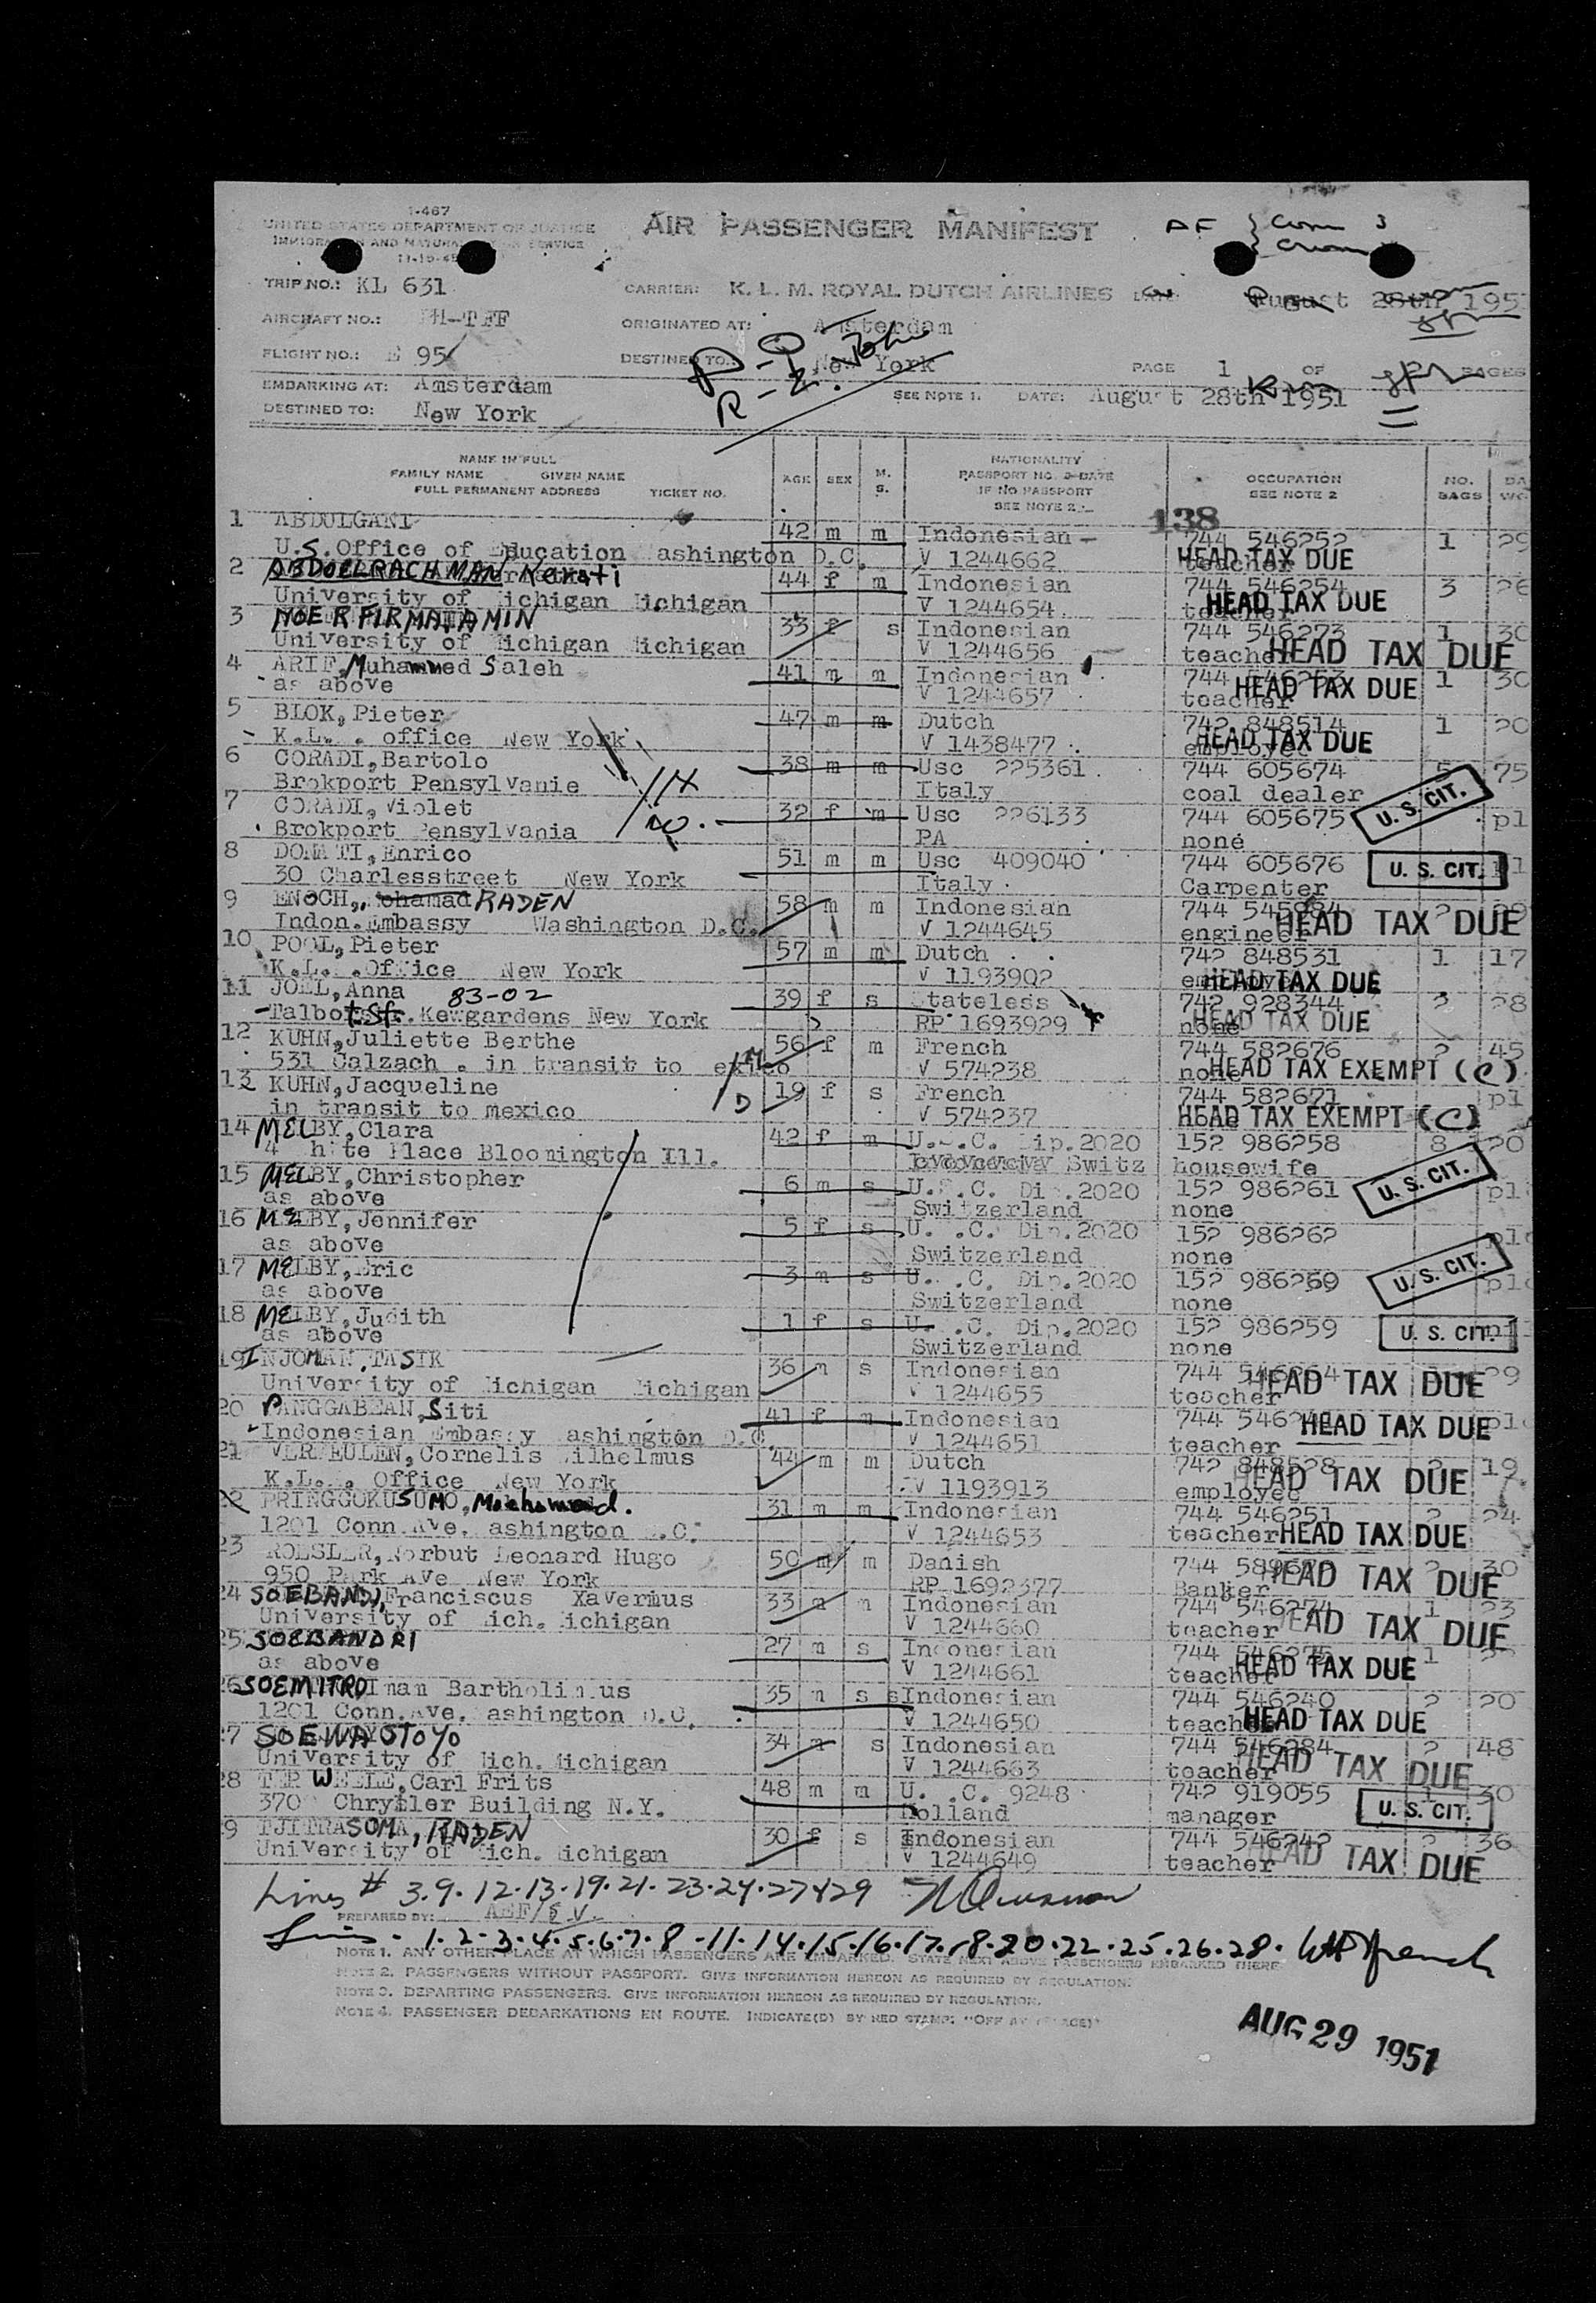 I-467
UNITED STATES DEPARTMENT OF JUSTICE
IMMIGRATION AND NATURALIZATION SERVICE
AIR PASSENGER MANIFEST
TRIP NO.: KL 631
CARRIER: K. L. M. ROYAL DUTCH AIRLINES
August 28th 195
AIRCRAFT NO.: PH-TFF
ORIGINATED AT: Amsterdam
FLIGHT NO.: E 95
DESTINED TO: New York
PAGE 1 OF PAGES
EMBARKING AT: Amsterdam
DESTINED TO: New York
SEE NOTE 1. DATE: August 28th 1951
NAME IN FULL
FAMILY NAME GIVEN NAME
FULL PERMANENT ADDRESS TICKET NO.
AGE SEX M. S.
NATIONALITY
PASSPORT NO. & DATE
IF NO PASSPORT
SEE NOTE 2.
OCCUPATION
SEE NOTE 2
NO. BAGS
138
1 ABDULGANI 42 m m Indonesian 744 546252 1 29
U.S.Office of Education Washington D.C. V 1244662 teacher HEAD TAX DUE
2 ABDOELRACHMAN Kerati 44 f m Indonesian 744 546254 3 26
University of Michigan Michigan V 1244654 teacher HEAD TAX DUE
3 NOER FIRMATAMIN 33 f s Indonesian 744 546273 1 30
University of Michigan Michigan V 1244656 teacher HEAD TAX DUE
4 ARIF, Muhammed Saleh 41 m m Indonesian 744 1 30
as above V 1244657 teacher HEAD TAX DUE
5 BLOK, Pieter 47 m m Dutch 742 848514 1 20
K.L.. office New York V 1438477 employee HEAD TAX DUE
6 CORADI, Bartolo 38 m m Usc 225361 744 605674 5 75
Brokport Pensylvanie Italy coal dealer U. S. CIT.
7 CORADI, Violet 32 f m Usc 226133 744 605675 pl
Brokport Pensylvania PA none
8 DONATI, Enrico 51 m m Usc 409040 744 605676 U. S. CIT.
30 Charlesstreet New York Italy Carpenter
9 ENOCH, Mohamad RADEN 58 m m Indonesian 744 2 29
Indon.Embassy Washington D.C. V 1244645 engineer HEAD TAX DUE
10 POOL, Pieter 57 m m Dutch 742 848531 1 17
K.L. .Office New York V 1193902 employee HEAD TAX DUE
11 JOEL, Anna 83-02 39 f s Stateless 742 928344 2 28
Talbot St. Kewgardens New York RP 1693929 none HEAD TAX DUE
12 KUHN, Juliette Berthe 56 f m French 744 582676 2 45
531 Calzach . in transit to mexico V 574238 none HEAD TAX EXEMPT (C)
13 KUHN, Jacqueline 19 f s French 744 582671 pl
in transit to mexico V 574237 none HEAD TAX EXEMPT (C)
14 MELBY, Clara 42 f m U.S.C. Dip.2020 152 986258 8 20
4 White Place Bloomington Ill. Switz housewife
15 MELBY, Christopher 6 m s U.S.C. Dip.2020 152 986261 U. S. CIT.
as above Switzerland none
16 MELBY, Jennifer 5 f s U. .C. Dip.2020 152 986262
as above Switzerland none
17 MELBY, Eric 3 m s U. .C. Dip.2020 152 986260 U. S. CIT.
as above Switzerland none
18 MELBY, Judith 1 f s U. .C. Dip.2020 152 986259 U. S. CIT.
as above Switzerland none
19 INJOMAN, TASIK 36 m s Indonesian 744
University of Michigan Michigan V 1244655 teacher HEAD TAX DUE
20 PANGGABEAN, Siti 41 f m Indonesian 744
Indonesian Embassy Washington D.C. V 1244651 teacher HEAD TAX DUE
21 VERMEULEN, Cornelis Wilhelmus 44 m m Dutch 742 848528 19
K.L.. . Office New York V 1193913 employee HEAD TAX DUE
22 PRINGGOKUSUMO, Mochamad. 31 m m Indonesian 744 546251 2 24
1201 Conn.Ave. Washington D.C. V 1244653 teacher HEAD TAX DUE
23 ROESLER, Norbut Leonard Hugo 50 m m Danish 744 2 30
950 Park Ave New York RP 1692377 Banker HEAD TAX DUE
24 SOEBANDI, Franciscus Xavermus 33 m m Indonesian 744 546274 1 23
University of Mich. Michigan V 1244660 teacher HEAD TAX DUE
25 SOEBANDRI 27 m s Indonesian 744 1
as above V 1244661 teacher HEAD TAX DUE
26 SOEMITRO Iman Bartholimeus 35 m s Indonesian 744 546240 2 20
1201 Conn.Ave. Washington D.C. V 1244650 teacher HEAD TAX DUE
27 SOEWAOTOYO 34 m s Indonesian 744 546284 2 48
University of Mich. Michigan V 1244663 teacher HEAD TAX DUE
28 TER WEELE, Carl Frits 48 m m U. .C. 9248 742 919055 1 30
370 Chrysler Building N.Y. Holland manager U. S. CIT.
29 TJITRASOMA, RADEN 30 f s Indonesian 744 546242 2 36
University of Mich. Michigan V 1244649 teacher HEAD TAX DUE
Lines # 3.9.12.13.19.21.23.24.27&29
PREPARED BY: AEF/
Lines. 1.2-3.4.5.6.7.8-11.14.15.16.17.18.20.22.25.26.28.
NOTE 1. ANY OTHER PLACE AT WHICH PASSENGERS ARE EMBARKED. STATE NEXT ABOVE PASSENGERS EMBARKED THERE
NOTE 2. PASSENGERS WITHOUT PASSPORT. GIVE INFORMATION HEREON AS REQUIRED BY REGULATION.
NOTE 3. DEPARTING PASSENGERS. GIVE INFORMATION HEREON AS REQUIRED BY REGULATION.
NOTE 4. PASSENGER DEBARKATIONS EN ROUTE. INDICATE(D) BY RED STAMP: "OFF AT (PLACE)"
AUG 29 1951